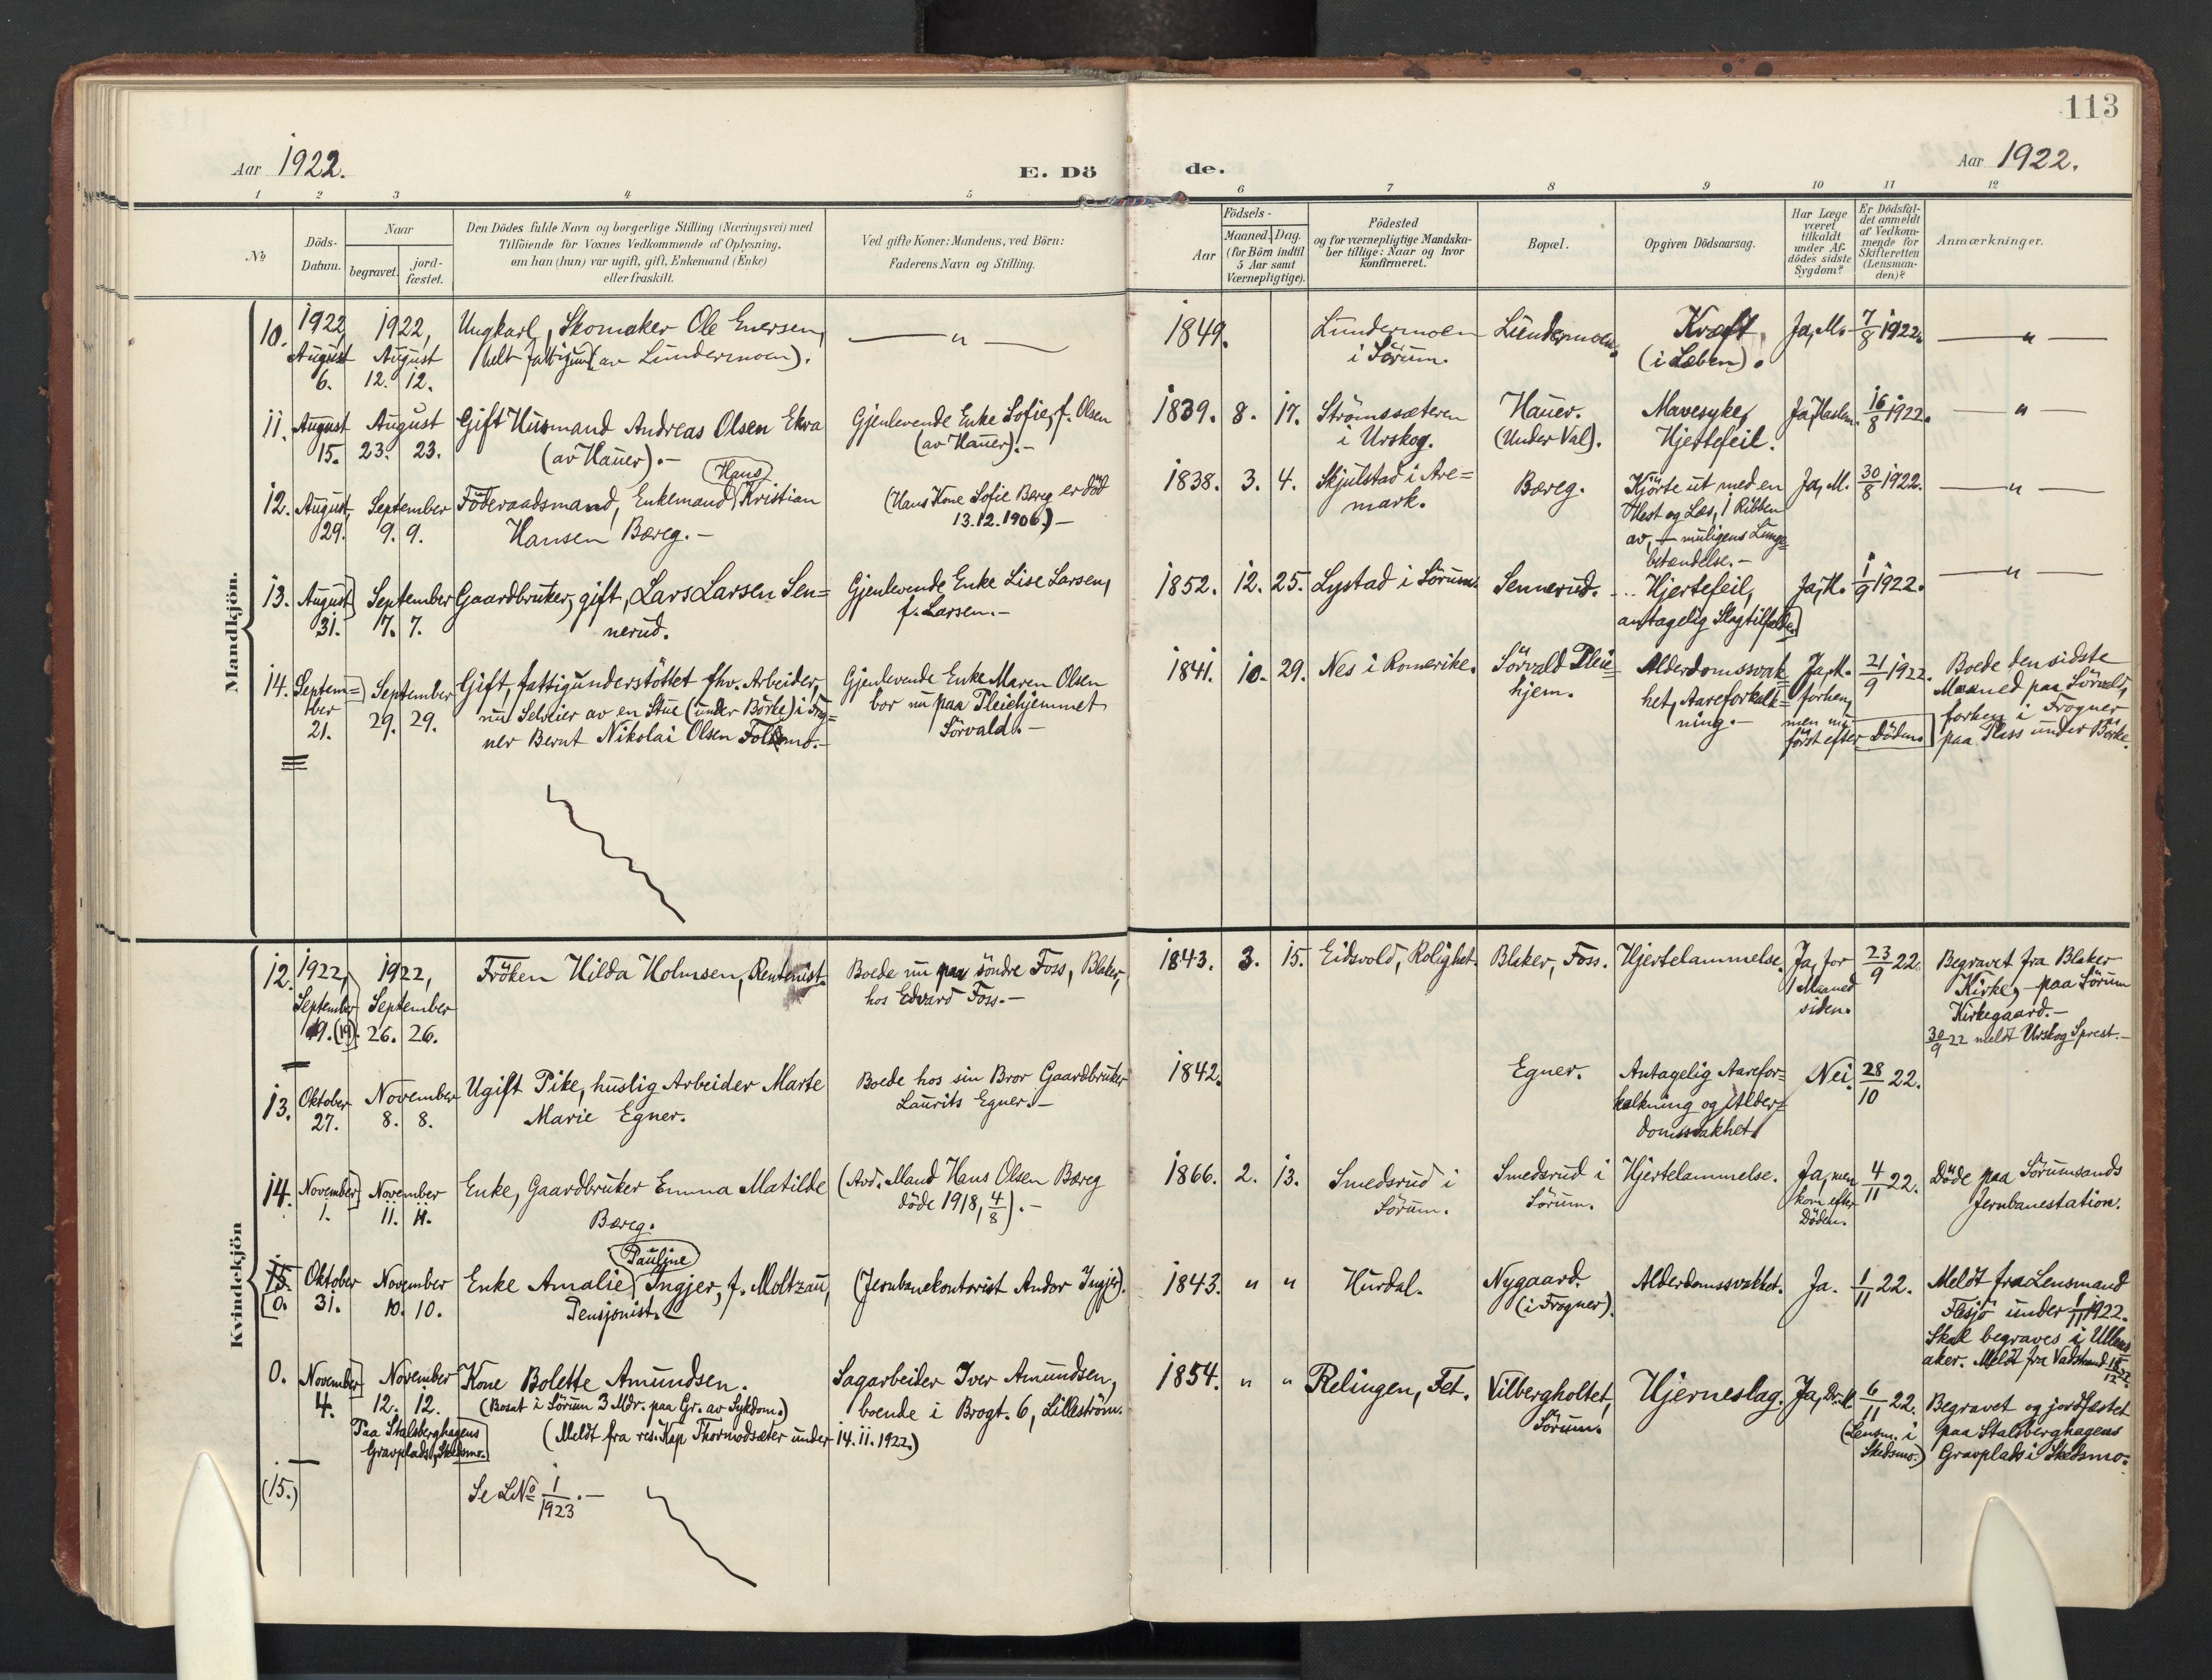 113
Aar 1922.
E. Dö
de.
Aar 1922.
1 2 3 4 5 6 7 8 9 10 11 12
№
Döds-
Datum.
Naar
begravet.
jord-
fæstet.
Den Dödes fulde Navn og borgerlige Stilling (Næringsvei) med
Tilföiende for Voxnes Vedkommende af Oplysning,
om han (hun) var ugift, gift, Enkemand (Enke)
eller fraskilt.
Ved gifte Koner: Mandens, ved Börn:
Faderens Navn og Stilling.
Födsels-
Aar
Maaned. Dag.
(for Börn indtil
5 Aar samt
Værnepligtige).
Födested
og for værnepligtige Mandska-
ber tillige: Naar og hvor
konfirmeret.
Bopæl.
Opgiven Dödsaarsag.
Har Læge
været
tilkaldt
under Af-
dödes sidste
Sygdom?
Er Dödsfal-
det anmeldt
af Vedkom-
mende for
Skifteretten
(Lensman-
den)?
Anmærkninger.
Mandkjön.
10.
1922,
August
6.
1922,
August
12. 12.
Ungkarl, Skomaker Ole Enersen,
(av Lundermoen).
— " —
1849.
Lundermoen
i Sörum.
Lundermoen.
Kræft
(i Læben).
Ja, M.
7/8 1922.
— " —
11.
August
15.
August
23. 23.
Gift Husmand Andreas Olsen Ekra
(av Hauer).-
Gjenlevende Enke Sofie, f. Olsen
(av Hauer).-
1839. 8. 17.
Strömssæteren
i Urskog.
Hauer.
(Under Val).
Mavesyke,
Hjertefeil.
Ja, Haslem.
16/8 1922.
— " —
12.
August
29.
September
9. 9.
Föderaadsmand, Enkemand Hans Kristian
Hansen Bæreg.-
(Hans Kone Sofie Bæreg er död
13.12.1906.)-
1838. 3. 4.
Skjulstad i Are=
mark.
Bæreg.
Kjörte ut med en
Hest og Læs, 1 Ribben
av, - muligens Lunge=
betændelse.-
Ja, M.
30/8 1922.
— " —
13.
August
31.
September
7. 7.
Gaardbruker, gift, Lars Larsen Sen=
nerud.
Gjenlevende Enke Lise Larsen,
f. Larsen.-
1852. 12. 25.
Lystad i Sörum.
Sennerud.
Hjertefeil,
antagelig Slagtilfælde.
Ja, H.
1/9 1922.
— " —
14.
Septem=
ber
21.
September
29. 29.
Gift, fattigunderstöttet fhv. Arbeider,
nu Selveier av en Stue (under Börke) i Frog=
ner Bernt Nikolai Olsen
Gjenlevende Enke Maren Olsen
bor nu paa Pleiehjemmet
Sörvald.-
1841. 10. 29.
Nes i Romerike.
Sörvald Pleie=
hjem.
Alderdomssvak=
het, Aareforkalk=
ning.-
Ja, H.
forhen,
men nu
först efter Döden.
21/9 1922.
Boede den sidste
Maaned paa Sörvald,
forhen i Frogner
paa Plass under Börke.
Kvindekjön
12.
1922,
September
19. (19).
1922,
September
26. 26.
Fröken Hilda Holmsen, Rentenist.
Boede nu paa söndre Foss, Blaker,
hos Edvard Foss.-
1843. 3. 15.
Eidsvold, Rolighet.
Blaker, Foss.
Hjertelammelse.
Ja, for
1 Maaned
siden.
23/9 22.
Begravet fra Blaker
Kirke, - paa Sörum
Kirkegaard.-
30/9 22 meldt Urskog Sprest.-
13.
Oktober
27.
November
8. 8.
Ugift Pike, huslig Arbeider Marte
Marie Egner.
Boede hos sin Bror Gaardbruker
Laurits Egner.-
1842.
Egner.
Antagelig Aarefor=
kalkning og Alder=
domssvakhet.
Nei.
28/10 22.
14.
November
1.
November
11. 11.
Enke, Gaardbruker Emma Matilde
Bæreg.
(Avd. Mand Hans Olsen Bæreg
döde 1918, 4/8).-
1866. 2. 13.
Smedsrud i
Sörum.
Smedsrud i
Sörum.
Hjertelammelse.
Ja, men
kom efter
Döden.
4/11 22.
Döde paa Sörumsands
Jernbanestation.
15.
0.
Oktober
31.
November
10. 10.
Enke Amalie Pauline Ingjer, f. Moltzau,
Pensjonist.
(Jernbanekontorist Andor Ingjer).
1843. " "
Hurdal.
Nygaard.
(i Frogner).
Alderdomssvakhet.
Ja.
1/11 22.
Meldt fra Lensmand
Flesjö under 1/11 1922.
Skal begraves i Ullens
aker. Meldt fra Vadstrand
0.
November
4.
November
12. 12.
Paa Stalsberghagens
Gravplads, Skedsmo.
Kone Bolette Amundsen.
(Bosat i Sörum 3 Mdr. paa Gr. av Sykdom.)
(Meldt fra res. Kap Thormodsæter under 14.11.1922.)
Sagarbeider Iver Amundsen,
boende i Brogt. 6, Lilleström.
1854. " "
Relingen, Fet.
Vilbergholtet,
Sörum.
Hjerneslag.
Ja, Dr. M.
6/11 22.
(Lensm. i
Skedsmo.)
Begravet og jordfæstet
paa Stalsberghagens
Gravplads i Skedsmo.
(15.)
Se LNo 1/1923.-